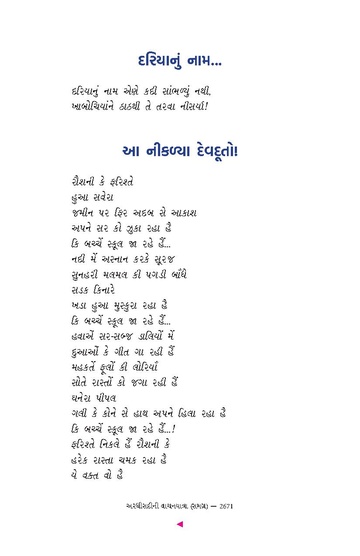 દરિયાનું નામ...
દરિયાનું નામ એણે કદી સાંભળ્યું નથી,
ખાબોચિયાંને ઠાઠથી તે તરવા નીસર્યા!
આ નીકળ્યા દેવદૂતો!
રૌશની કે ફરિશ્તે
હુઆ સવેરા
જમીન પર ફિર અદબ સે આકાશ
અપને સર કો ઝુકા રહા હૈ
કિ બચ્ચેં સ્કૂલ જા રહે હૈં...
નદી મેં અસ્નાન કરકે સૂરજ
સુનહરી મલમલ કી પગડી બાઁધે
સડક કિનારે
ખડા હુઆ મુસ્કુરા રહા હૈ
કિ બચ્ચેં સ્કૂલ જા રહે હૈં...
હવાએઁ સર-સબ્જ ડાલિયોં મેં
દુઆઓં કે ગીત ગા રહી હૈં
મહકતેં ફૂલોં કી લોરિયાઁ
સોતે રાસ્તોં કો જગા રહી હૈં
ઘનેરા પીપલ
ગલી કે કોને સે હાથ અપને હિલા રહા હૈ
કિ બચ્ચેં સ્કૂલ જા રહે હૈં...!
ફરિશ્તે નિકલે હૈં રૌશની કે
હરેક રાસ્તા ચમક રહા હૈ
યે વક્ત વો હૈ
અરધીસદીની વાચનયાત્રા (સમગ્ર) — 2671